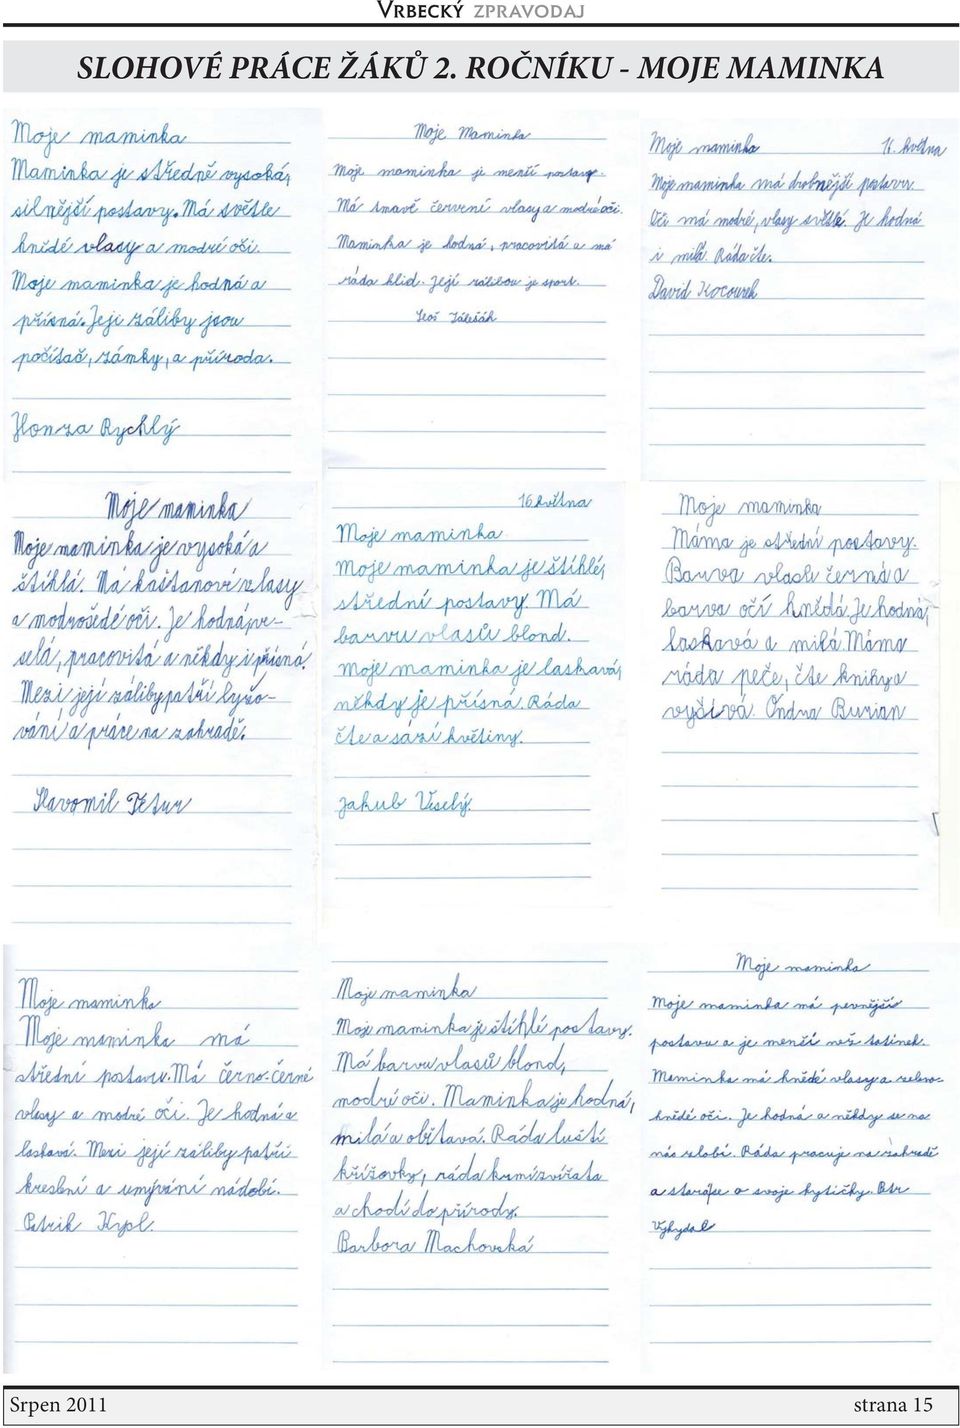 VRBECKÝ ZPRAVODAJ
SLOHOVÉ PRÁCE ŽÁKŮ 2. ROČNÍKU - MOJE MAMINKA
Moje maminka
Maminka je středně vysoká,
silnější postavy. Má světle
hnědé vlasy a modré oči.
Moje maminka je hodná a
přísná. Jeji záliby jsou
počítač, zámky, a příroda.
Honza Rychlý
Moje Maminka
Moje maminka je menší postavy.
Má tmavě červení vlasy a modré oči.
Maminka je hodná, pracovitá a má
ráda klid. Její zálibou je sport.
Moje maminka 16. května
Moje maminka má drobnější postavu.
Oči má modré, vlasy světlé. Je hodná
i milá. Ráda čte.
David Kocourek
Moje maminka
Moje maminka je vysoká a
štíhlá. Má kaštanové vlasy
a modrošedé oči. Je hodná, ve-
selá, pracovitá a někdy i přísná.
Mezi její záliby patří lyžo-
vání a práce na zahradě.
Slavomil Petur
16. května
Moje maminka
Moje maminka je štíhlé,
střední postavy. Má
barvu vlasů blond.
Moje maminka je laskavá,
někdy je přísná. Ráda
čte a sází květiny.
Jakub Veselý.
Moje maminka
Máma je střední postavy.
Barva vlasů černá a
barva očí hnědá. Je hodná,
laskavá a milá. Máma
ráda peče, čte knihy a
vyšívá. Ondra Burian
Moje maminka
Moje maminka má
střední postavu. Má černo-černé
vlasy a modré oči. Je hodná a
laskavá. Mezi její záliby patří
kreslení a umývání nádobí.
Patrik Kypl.
Moje maminka
Moje maminka je štíhlé postavy.
Má barvu vlasů blond,
modré oči. Maminka je hodná,
milá a obětavá. Ráda luští
křížovky, ráda krmí zvířata
a chodí do přírody.
Barbora Machovská
Moje maminka
Moje maminka má pevnější
postavu a je menší než tatínek.
Maminka má hnědé vlasy a zeleno-
hnědé oči. Je hodná a někdy se na
nás zlobí. Ráda pracuje na zahradě
a stará se o svoje kytičky. Petr
Vyhydal
Srpen 2011 strana 15